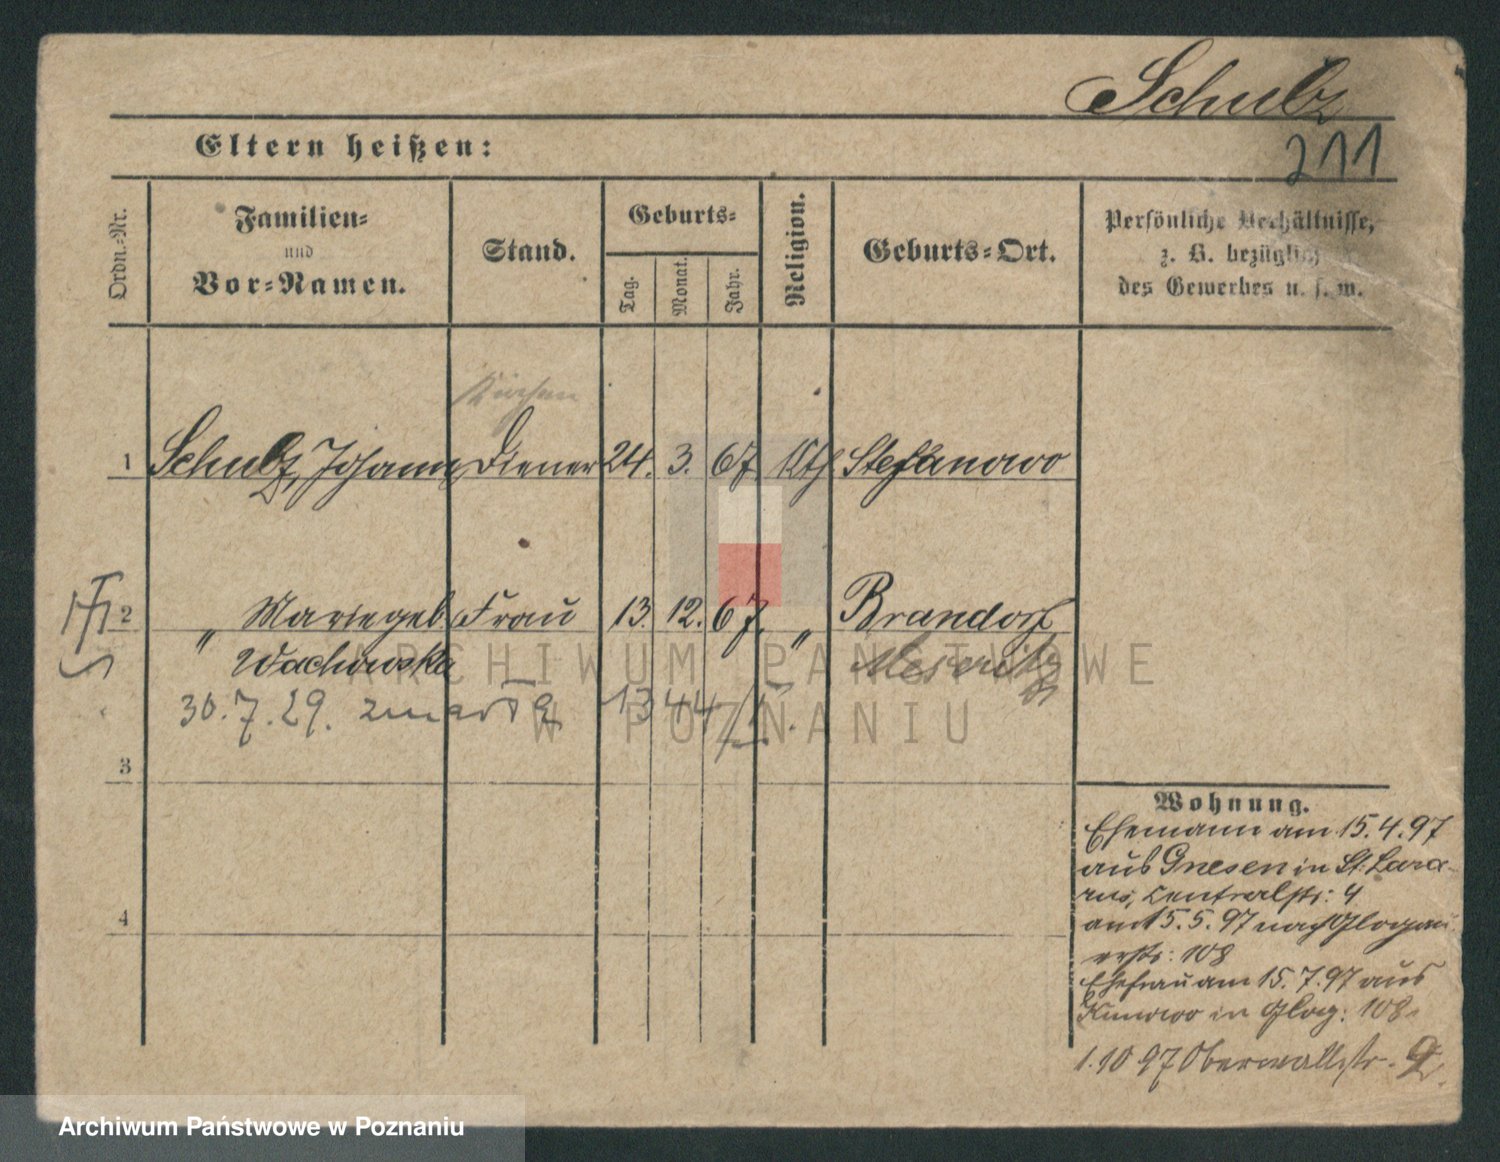 Schulz
211
Eltern heißen:
Ordn.-Nr.
Familien-
und
Vor-Namen.
Stand.
Geburts-
Tag.
Monat.
Jahr.
Religion.
Geburts-Ort.
Persönliche Verhältnisse,
z. B. bezüglich
des Gewerbes u. s. w.
Kirchen
1 Schulz, Johann Diener 24. 3. 67. Kth. Stefanowo
2 " Marie geb Frau 13. 12. 67. " Brandorf
Wachowska Meseritz
30. 7. 29. zmarła 1344/
3
4
Wohnung.
Ehemann am 15.4.97
aus Gnesen in St. Laza-
rus, Centralstr: 4
am 15.5.97 nach Glogau
erstr: 108
Ehefrau am 15.7.97 aus
Kunowo in Glog: 108
1.10 97 Oberwallstr. 9
ARCHIWUM PAŃSTWOWE
W POZNANIU
Archiwum Państwowe w Poznaniu